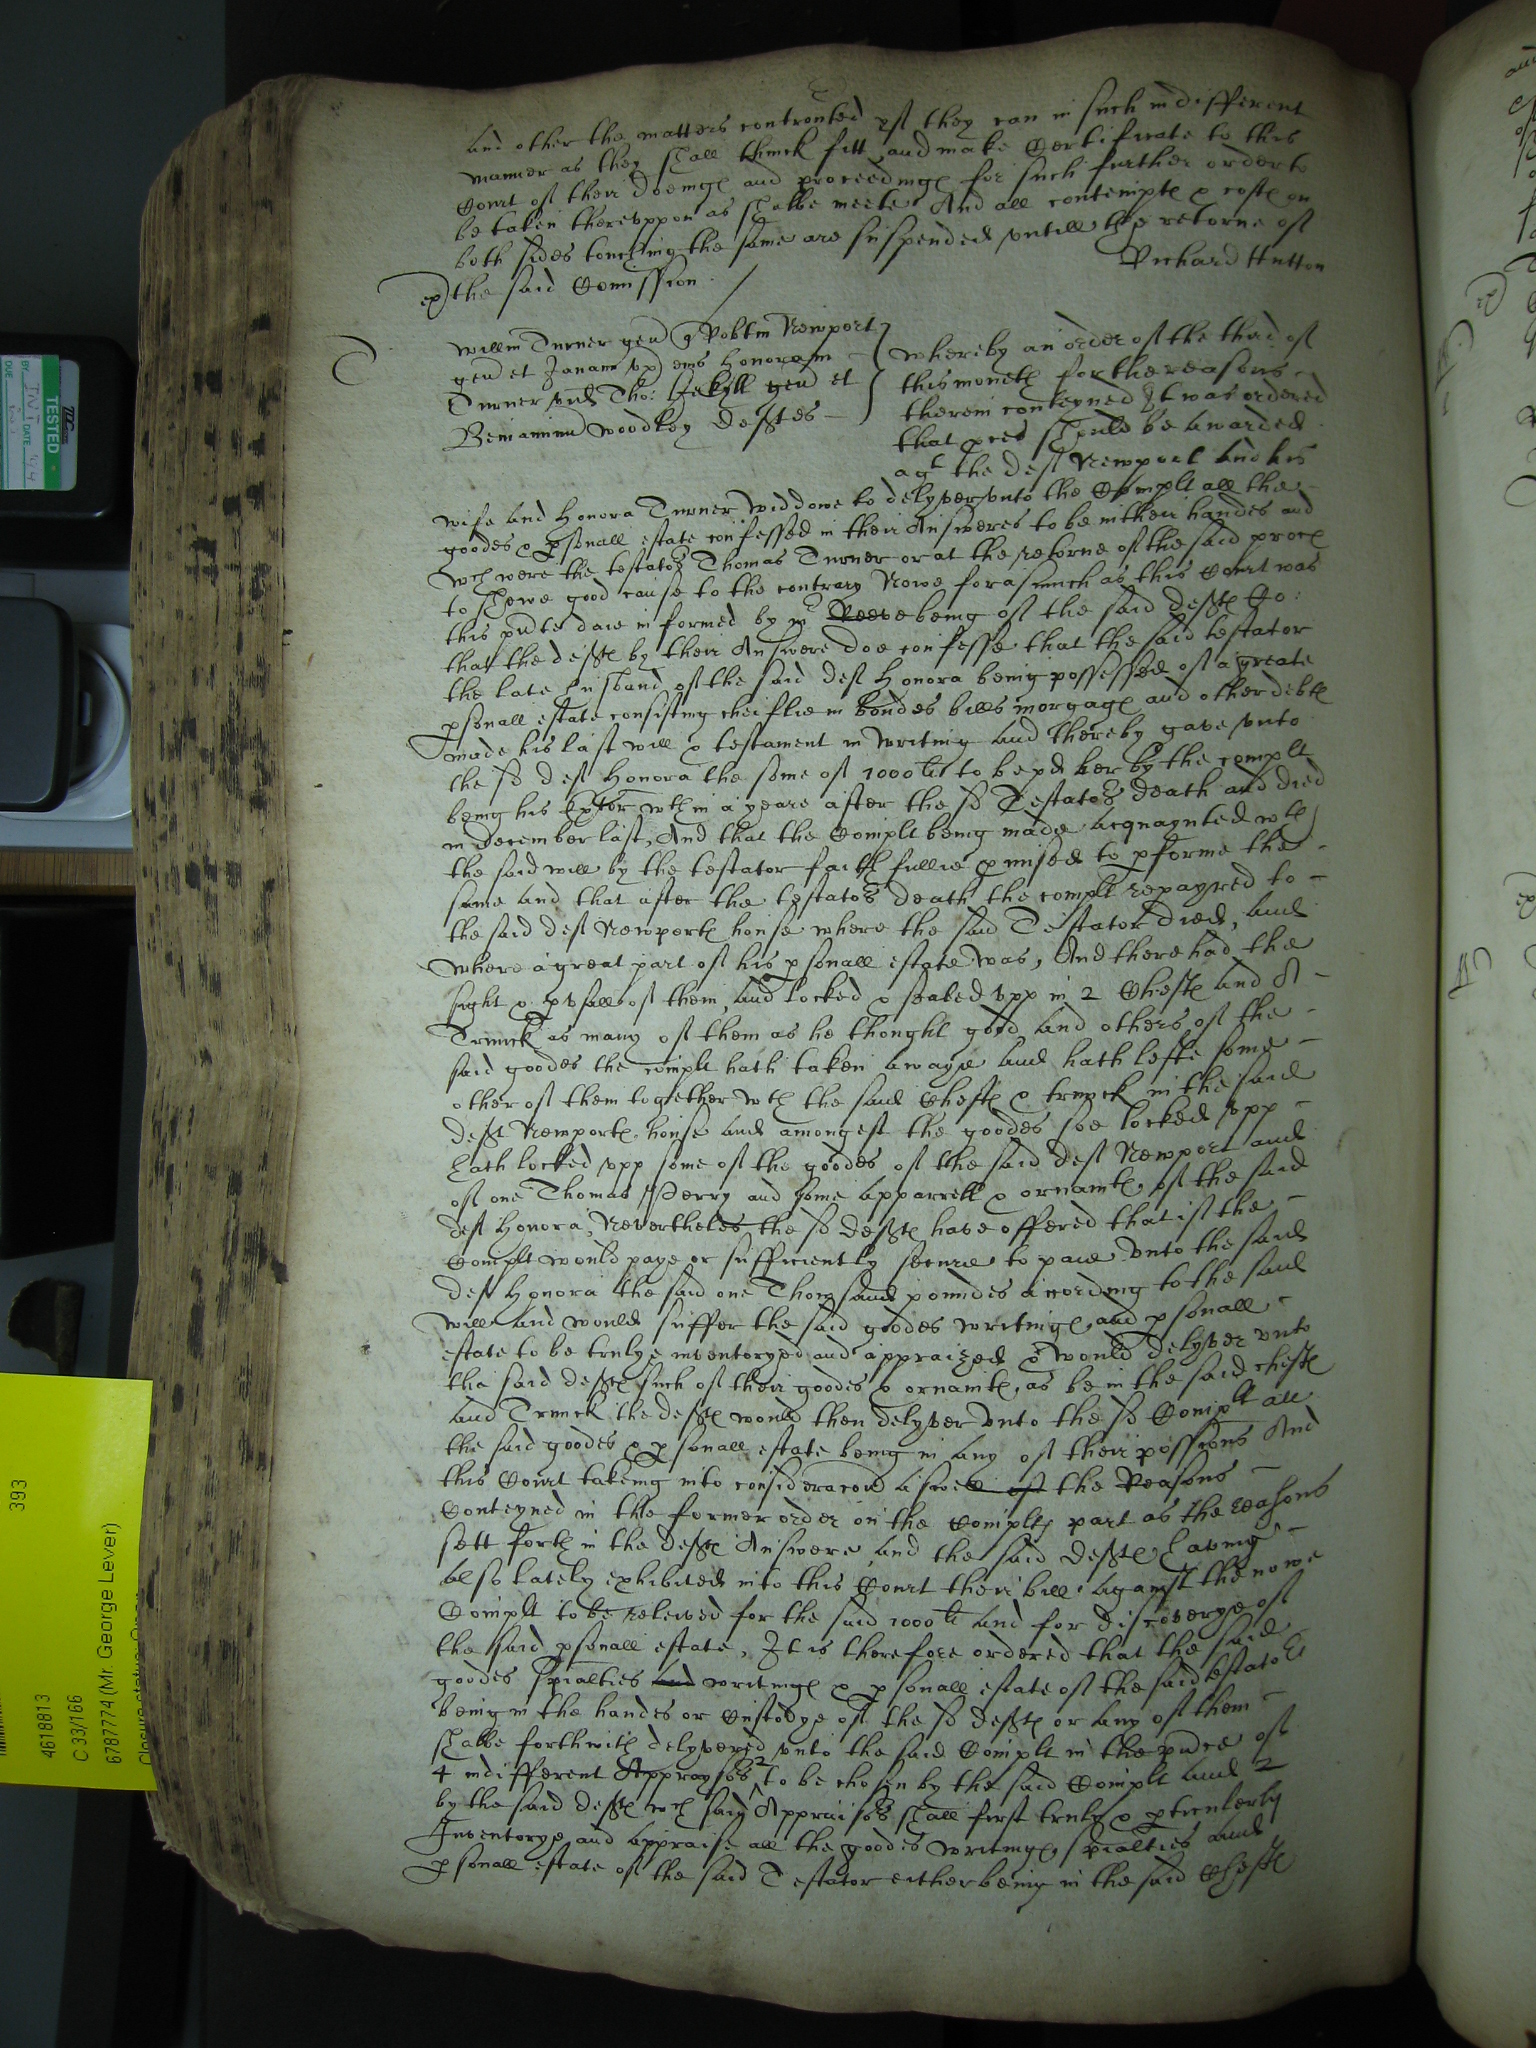 And other the matters controuted yf they can in such indifferent
manner as they shall thinck fitt and make Certificate to this
Court of their doeings and proceedings for such further order to
be taken therevppon as shalbe meete And all contempts & costs on
both sides touching the same are suspended vntill the returne of
the said Comission
Richard Hutton
Willm Turner gen Robtm Newport
gen et Janam vx eius Honoram
Turner vid Tho: Jekyll gen et
Beniaminu Woodkoy defts
Whereby an order of the third of
this moneth for the reasons
therein conteyned It was ordered
that proces should be awarded
agt the deft Newport And his
wife And Honora Turner widdowe to delyver vnto the Complt all the
goodes & psonall estate confessed in their Answeres to be in their handes and
wch were the testators Thomas Turner or at the retorne of the said proces
to shewe good cause to the contrary Nowe forasmuch as this Court was
this pnte daie informed by mr Reeve being of the said defts Co:
that the defts by their Answere doe confesse that the said testator
the late husband of the said deft Honora being possessed of a greate
psonall estate consisting cheiflie in bondes bills morgages and other debts
made his last will & testament in writing And thereby gave vnto
the sd deft Honora the some of 1000li to be pd her by the complt
being his Exetor wthin a yeare after the sd Testators death and died
in december last, And that the Complt being made acquaynted wth
the said will by the testator faithfullie pmised to pforme the
same And that after the testators death the complt repayred to
the said deft Newports house where the said Testator died, and
where a great part of his psonall estate was, And there had the
sight & pvsall of them, and locked & sealed vpp in 2 Chests and A
Trunck as many of them as he thought good And others of the
said goodes the complt hath taken awaye and hath lefte some
other of them together wth the said Chests & trunck in the said
deft Newports house And amongest the goodes soe locked vpp
hath locked vpp some of the goodes of the said deft Newport and
of one Thomas Perry and some apparrell & ornamts of the said
deft Honora, Nevertheles the sd defts have offered that if the
Complt would paye or sufficiently secure to paie vnto the said
deft Honora the said one Thousand poundes according to the said
will And would suffer the said goodes writings and psonall
estate to be trulye inventoryed and appraized & would delyver vnto
the said defts such of their goodes & ornamts, as be in the said chests
And Trunck the defts would then delyver vnto the sd Complt all
the said goodes & psonall estate being in any of their possions And
this Court takeing into consideracon aswell of the Reasons
Conteyned in the former order on the Complts part as the reasons
sett forth in the defts Answere And the said defts having
also lately exhibited into this Court their bill against the nowe
Complt to be releived for the said 1000li And for discoverye of
the said psonall estate, It is therefore ordered that the said
goodes spialties and writings & psonall estate of the said testator
being in the handes or Custodye of the sd defts or any of them
shalbe forthwith delyvered vnto the said Complt in the pnce of
4 indifferent Appraysors 2 to be chosen by the said Complt and 2
by the said defts wch said Appraisors shall first truly & pticulerly
Inventorye and Appraise all the goodes writings, spialties and
psonall estate of the said Testator either being in the said Chests
TESTED
DUE
393
4618813
C 33/166
6787774 (Mr. George Lever)
Closure status: Open